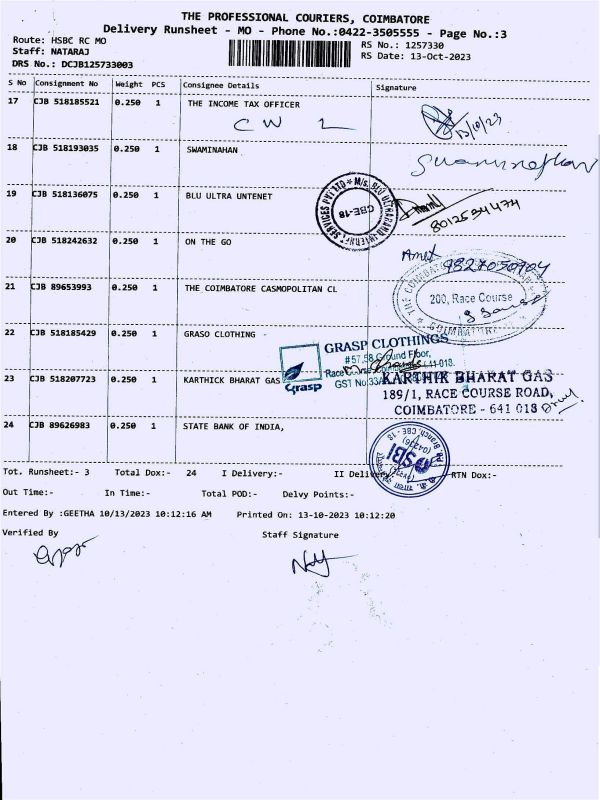 THE PROFESSIONAL COURIERS, COIMBATORE
Delivery Runsheet - MO - Phone No.:0422-3505555 - Page No.:3
Route: HSBC RC MO
RS No.: 1257330
Staff: NATARAJ
RS Date: 13-Oct-2023
DRS No.: DCJB125733003
S No Consignment No Weight PCS Consignee Details Signature
17 CJB 518185521 0.250 1 THE INCOME TAX OFFICER
13/10/23
18 CJB 518193035 0.250 1 SWAMINAHAN
Swaminathan
19 CJB 518136075 0.250 1 BLU ULTRA UNTENET
M/s. BLU ULTRABAND INTERNET SERVICES PVT LTD
CBE-18
8012534474
20 CJB 518242632 0.250 1 ON THE GO
9827050904
21 CJB 89653993 0.250 1 THE COIMBATORE CASMOPOLITAN CL
200, Race Course
COIMBATORE
22 CJB 518185429 0.250 1 GRASO CLOTHING
GRASP CLOTHINGS
#57,58 Ground Floor,
Grasp
23 CJB 518207723 0.250 1 KARTHICK BHARAT GAS
KARTHIK BHARAT GAS
189/1, RACE COURSE ROAD,
COIMBATORE - 641 018
24 CJB 89626983 0.250 1 STATE BANK OF INDIA,
SBI
Tot. Runsheet:- 3 Total Dox:- 24 I Delivery:- II Delivery:- RTN Dox:-
Out Time:- In Time:- Total POD:- Delvy Points:-
Entered By :GEETHA 10/13/2023 10:12:16 AM Printed On: 13-10-2023 10:12:20
Verified By Staff Signature